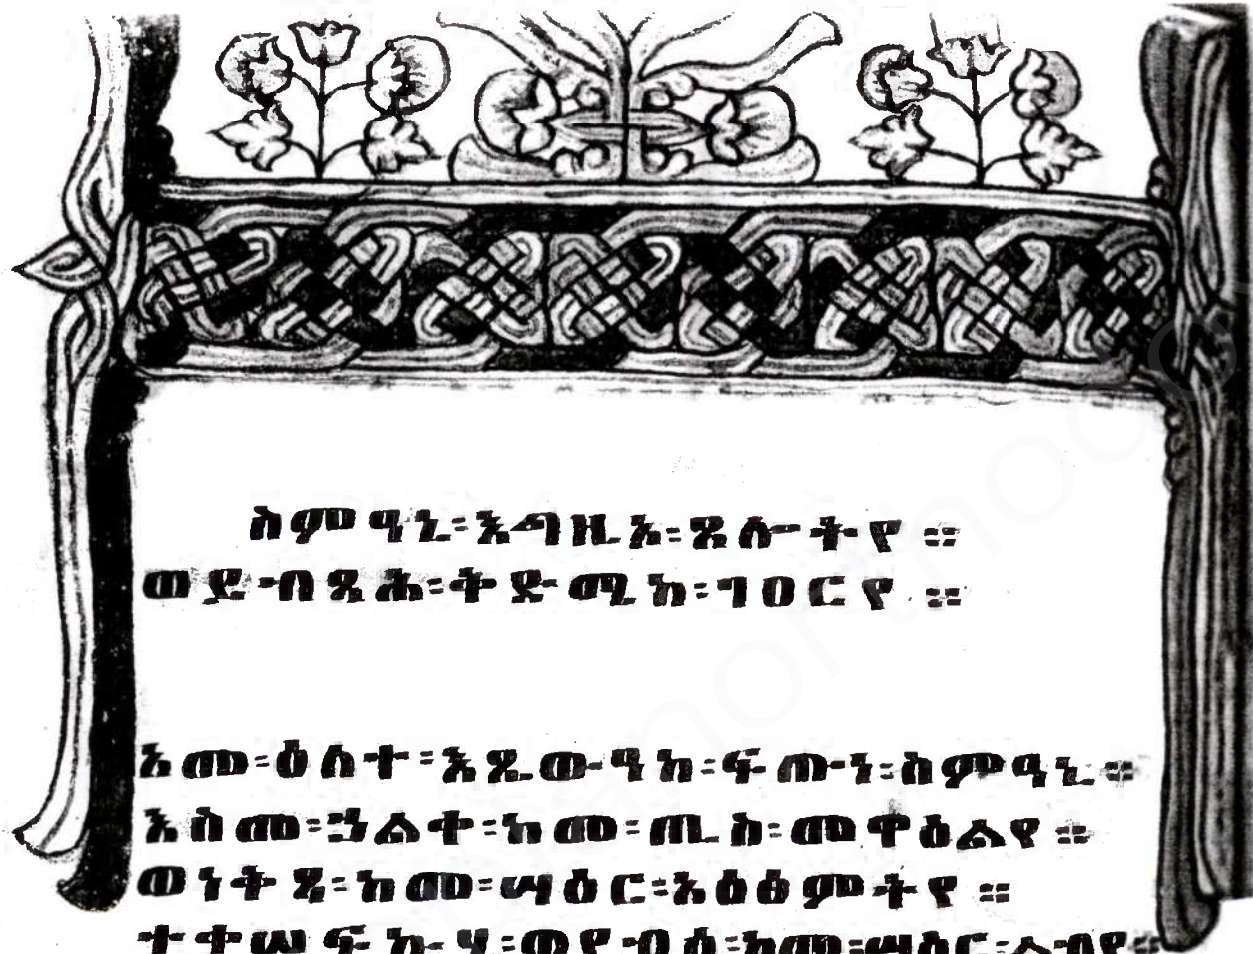 ስምዓኒ፡እግዚኦ፡ጸሎትየ ።
ወይብጻሕ፡ቅድሜከ፡ገዐርየ ።
አመ፡ዕለተ፡እጼውዓከ፡ፍጡነ፡ስምዓኒ ።
እስመ፡ኃልቀ፡ከመ፡ጢስ፡መዋዕልየ ።
ወነቅጸ፡ከመ፡ሣዕር፡አዕፅምትየ ።
ወየብሰ፡ከመ፡ሣዕር፡ልብየ ።